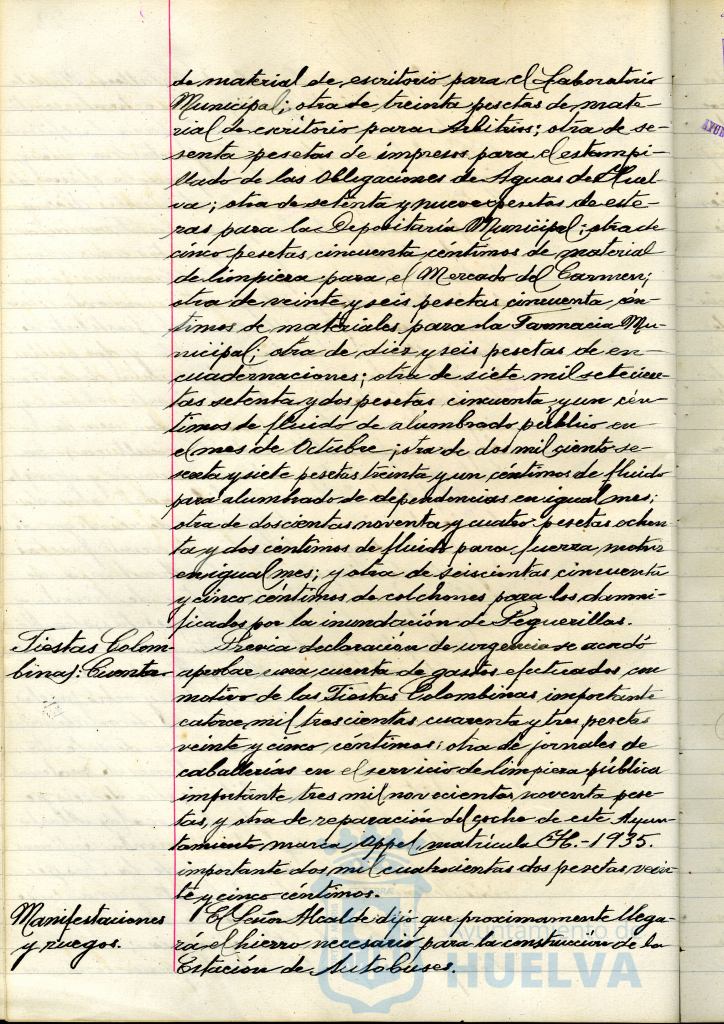 de material de escritorio para el Laboratorio
Municipal; otra de treinta pesetas de mate-
rial de escritorio para Arbitrios; otra de se-
senta pesetas de impresos para el estampi-
llado de las Obligaciones de Aguas de Huel-
va; otra de setenta y nueve pesetas de este-
ras para la Depositaría Municipal; otra de
cinco pesetas, cincuenta céntimos de material
de limpieza para el Mercado del Carmen;
otra de veinte y seis pesetas cincuenta cén-
timos de materiales para la Farmacia Mu-
nicipal; otra de diez y seis pesetas de en-
cuadernaciones; otra de siete mil setecien-
tas setenta y dos pesetas cincuenta y un cén-
timos de fluido de alumbrado público en
el mes de Octubre; otra de dos mil ciento se-
senta y siete pesetas treinta y un céntimos de fluido
para alumbrado de dependencias en igual mes;
otra de doscientas noventa y cuatro pesetas ochen-
ta y dos céntimos de fluido para fuerza motriz
en igual mes; y otra de seiscientas cincuenta
y cinco céntimos de colchones para los damni-
ficados por la inundación de Peguerillas.
Fiestas Colom-
binas: Cuenta-
Previa declaración de urgencia se acordó
aprobar una cuenta de gastos efectuados con
motivo de las Fiestas Colombinas importante
catorce mil trescientas cuarenta y tres pesetas
veinte y cinco céntimos; otra de jornales de
caballerías en el servicio de limpieza pública
importante tres mil novecientas noventa pese-
tas, y otra de reparación del coche de este Ayun-
tamiento marca Oppel, matrícula H.-1935.
importante dos mil cuatrocientas dos pesetas vein-
te y cinco céntimos.
Manifestaciones
y ruegos.
El Señor Alcalde dijo que proximamente llega-
rá el hierro necesario para la construcción de la
Estación de Autobuses.
Ayuntamiento de
HUELVA